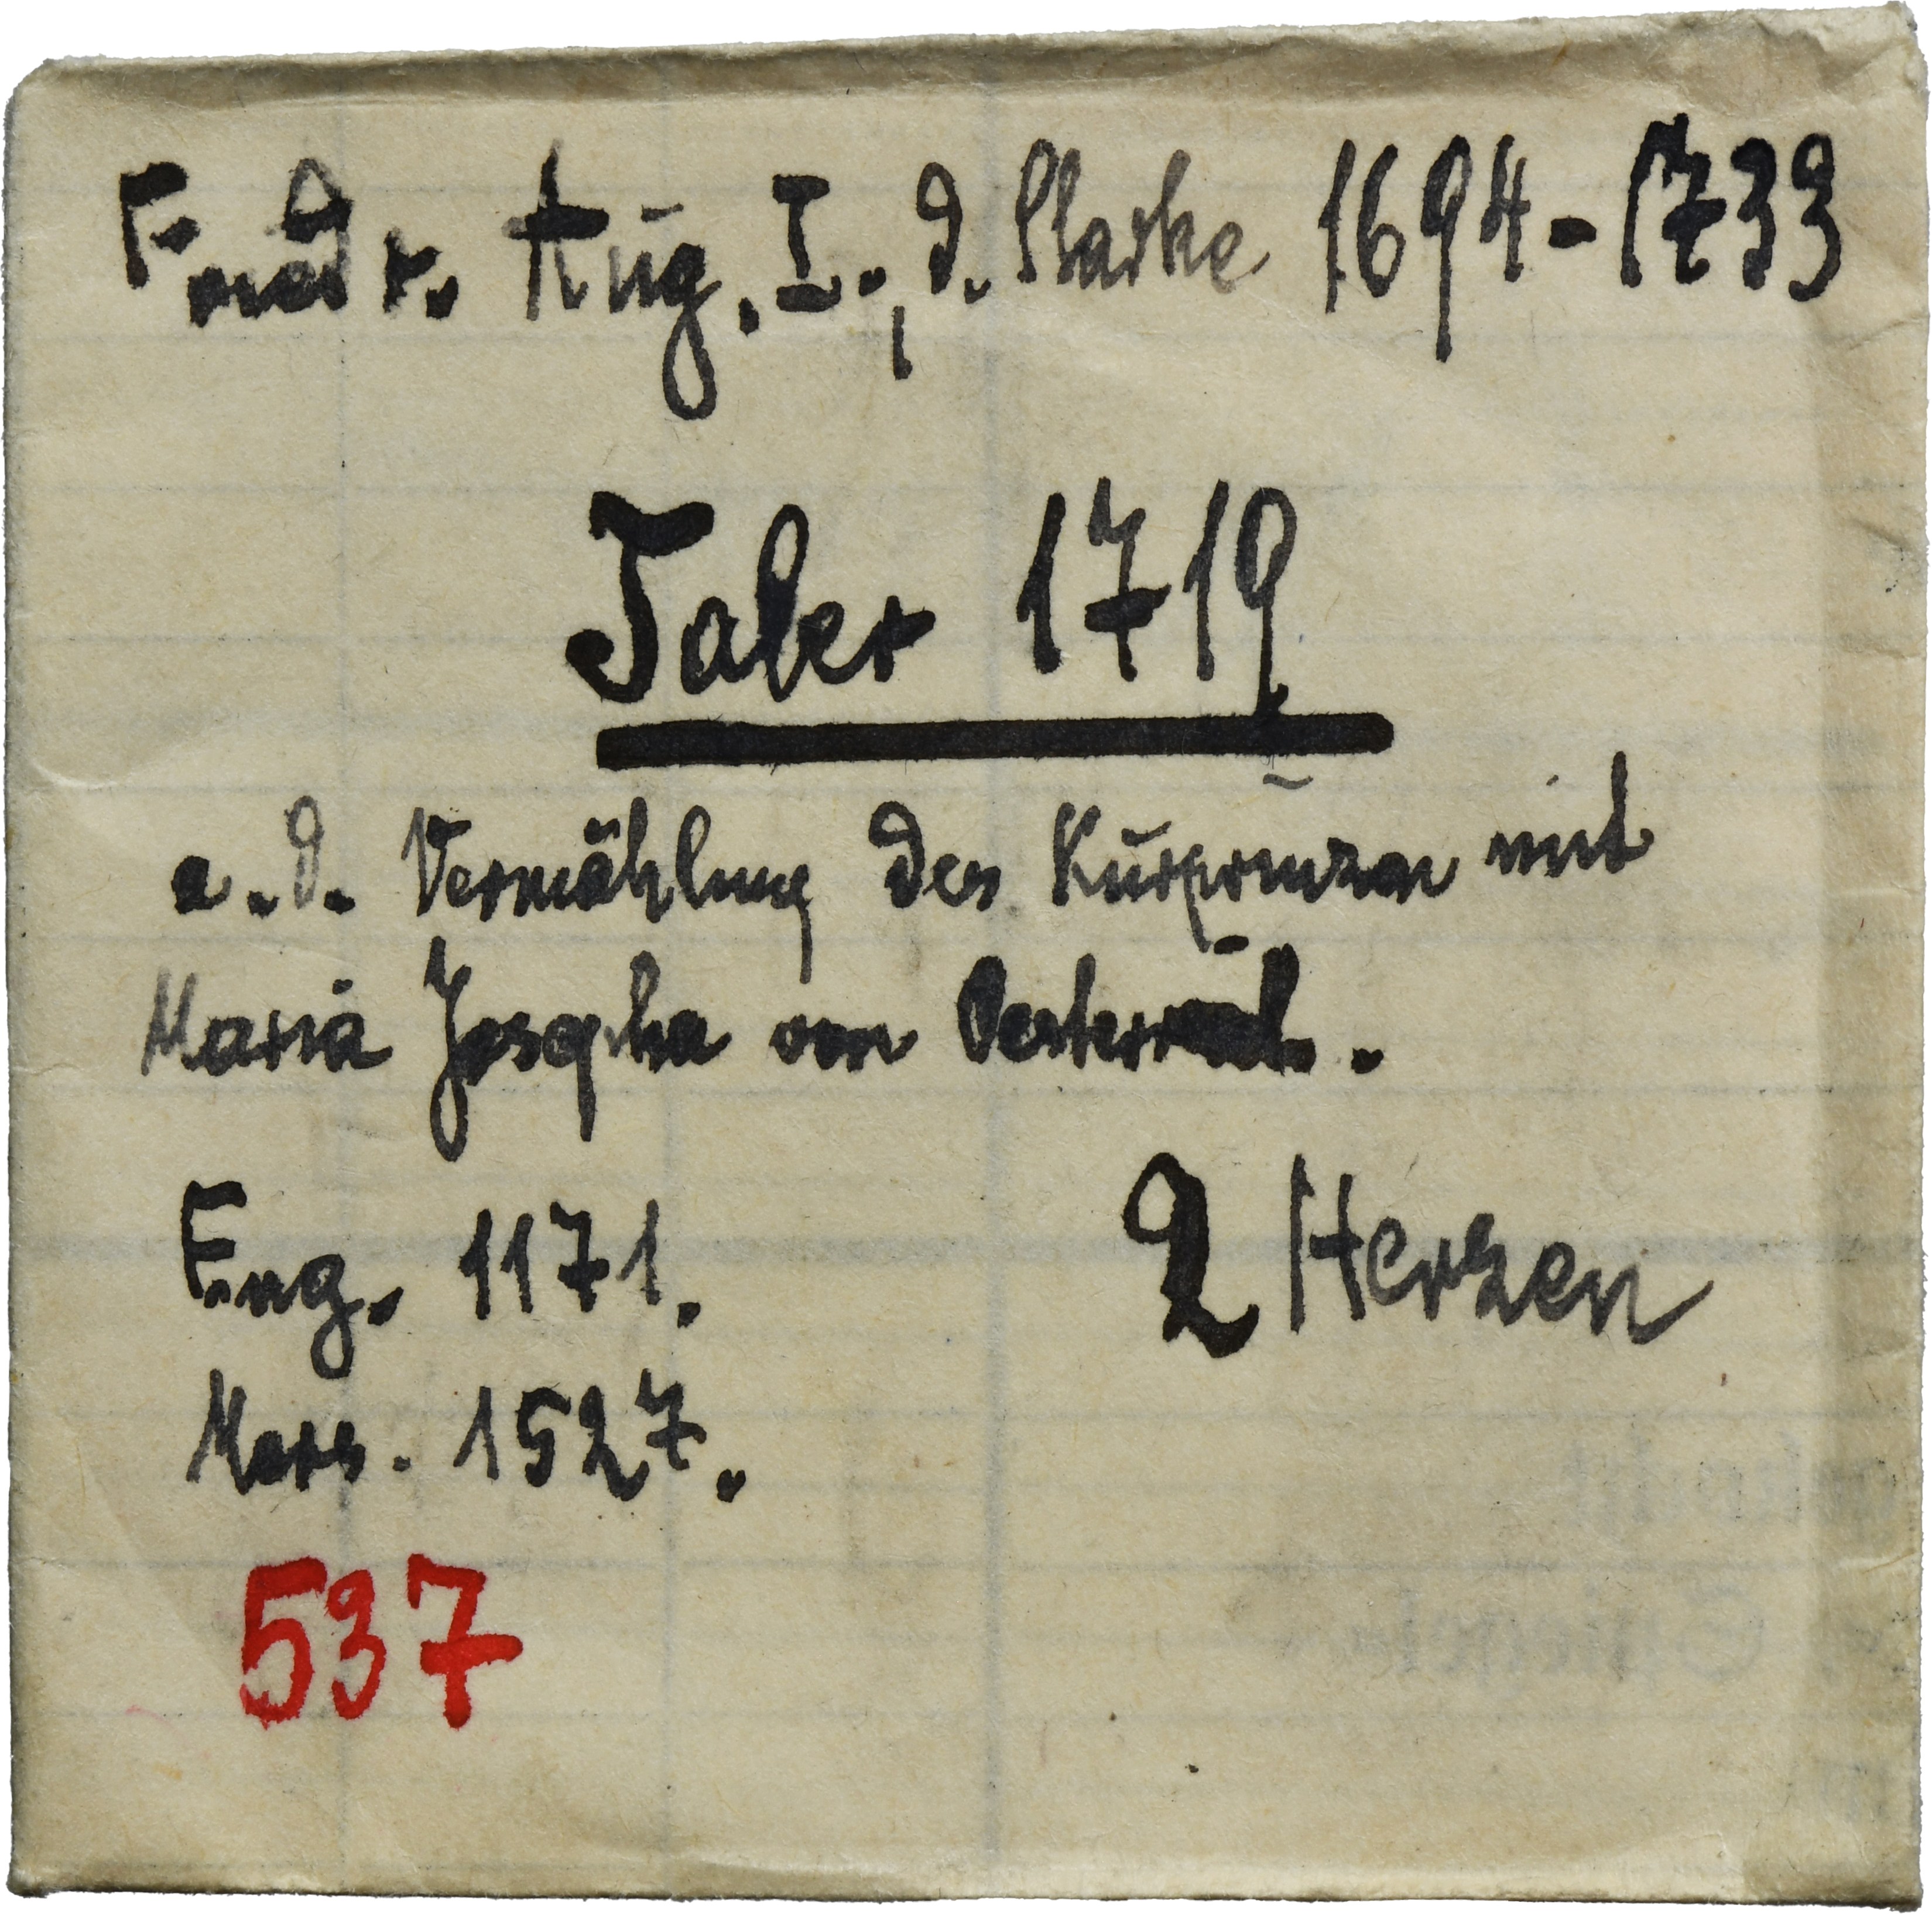 Friedr. Aug. I., d. Starke 1694-1733
Taler 1719
a. d. Vermählung des Kurprinzen mit
Maria Josepha von Oesterreich.
Eng. 1171.
2 Herzen
Mers. 1527.
537